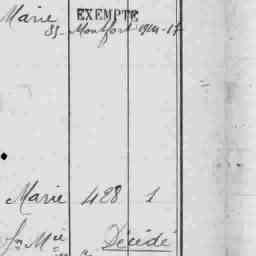 Marie EXEMPTE
33 - Montfort 1914-17
Marie 428 1
Jn Mie Décédé